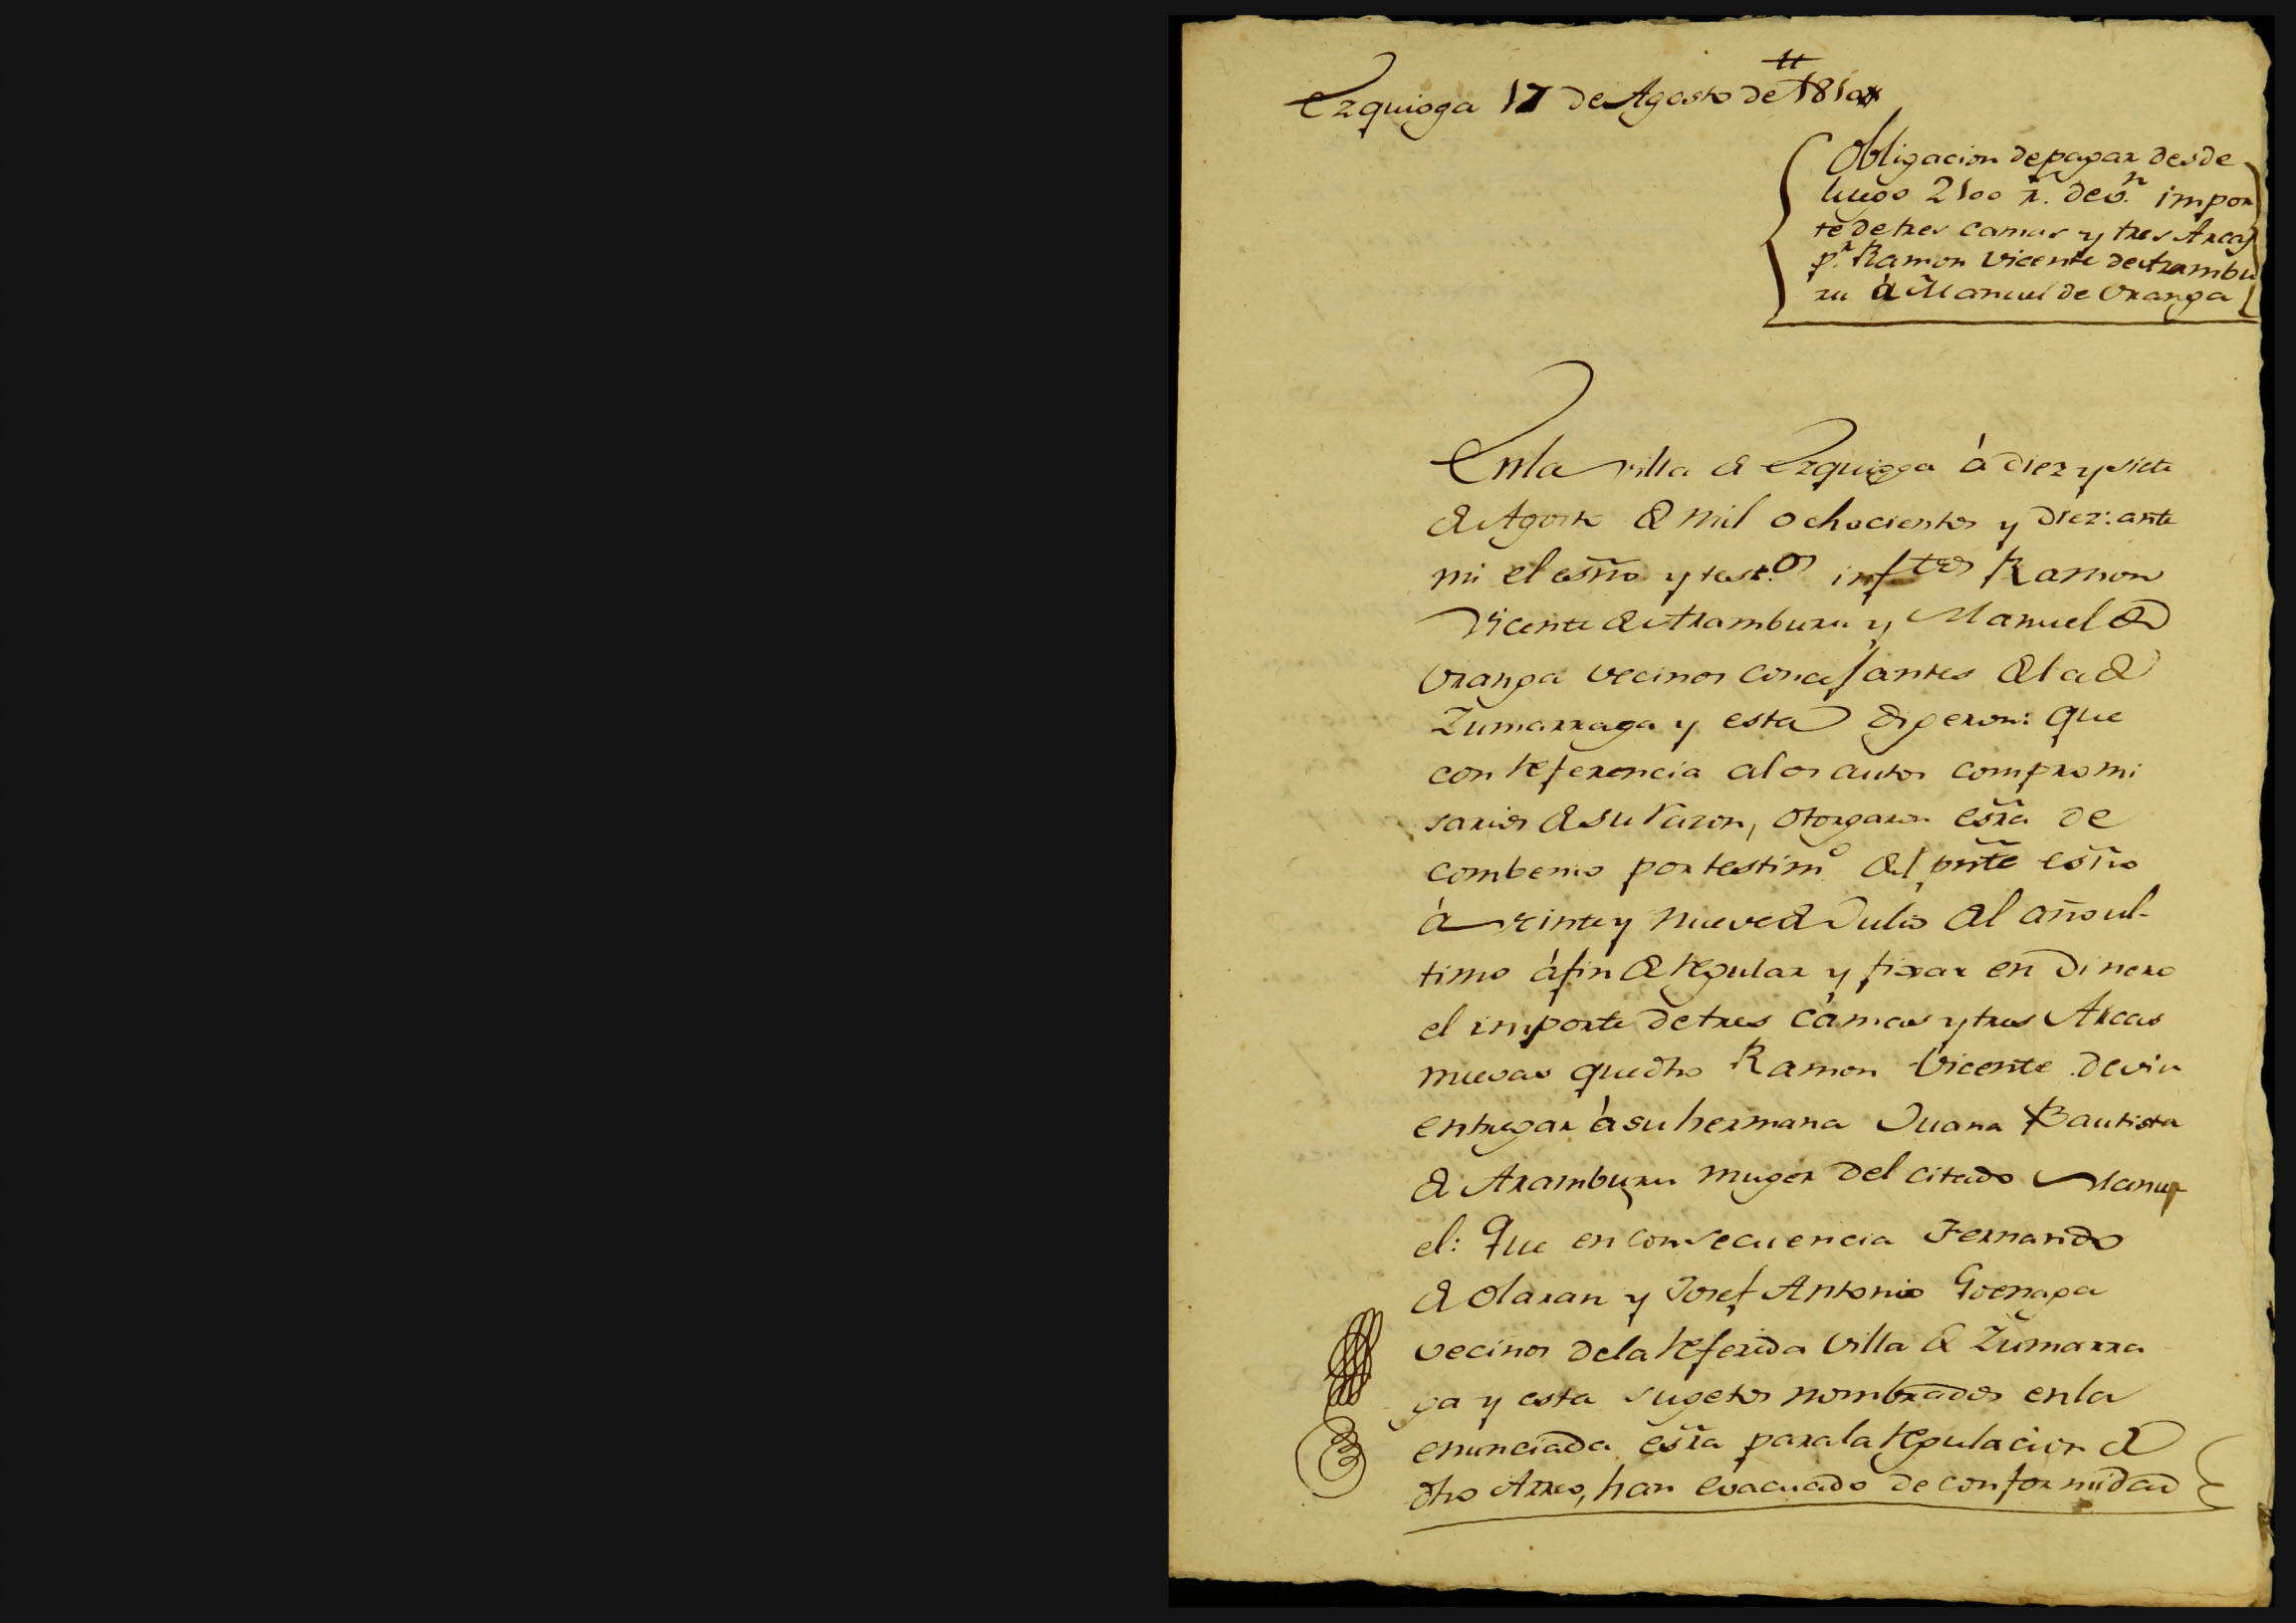 Ezquioga 17 de Agosto de 1810
Obligacion de pagar desde
luego 2100 r.ˢ de v.ⁿ impor
te de tres camas y tres Arcas
p.ʳ Ramon Vicente de Arambu
ru á Manuel de Oranga
En la villa de Ezquioga à diez y siete
de Agosto de mil ochocientos y diez: ante
mi el esño. y test.os inf.tos Ramon
Vicente de Aramburu y Manuel de
Oranga vecinos concejantes de la de
Zumarraga y esta dijeron: que
con referencia a los autos compromi
sarios de su razon, otorgaron esrã de
combenio por testim.º del pñte esño
à veinte y nueve de Julio del año ul-
timo à fin de regular y fixar en dinero
el importe de tres camas y tres Arcas
nuevas que dho Ramon Vicente devia
entregar à su hermana Juana Bautista
de Aramburu muger del citado Manu
el: que en consecuencia Fernando
de Olaran y Josef Antonio Goenaga
vecinos de la referida villa de Zumarra
ga y esta sugetos nombrados en la
enunciada esrã para la regulacion de
dho Arreo, han evacuado de conformidad